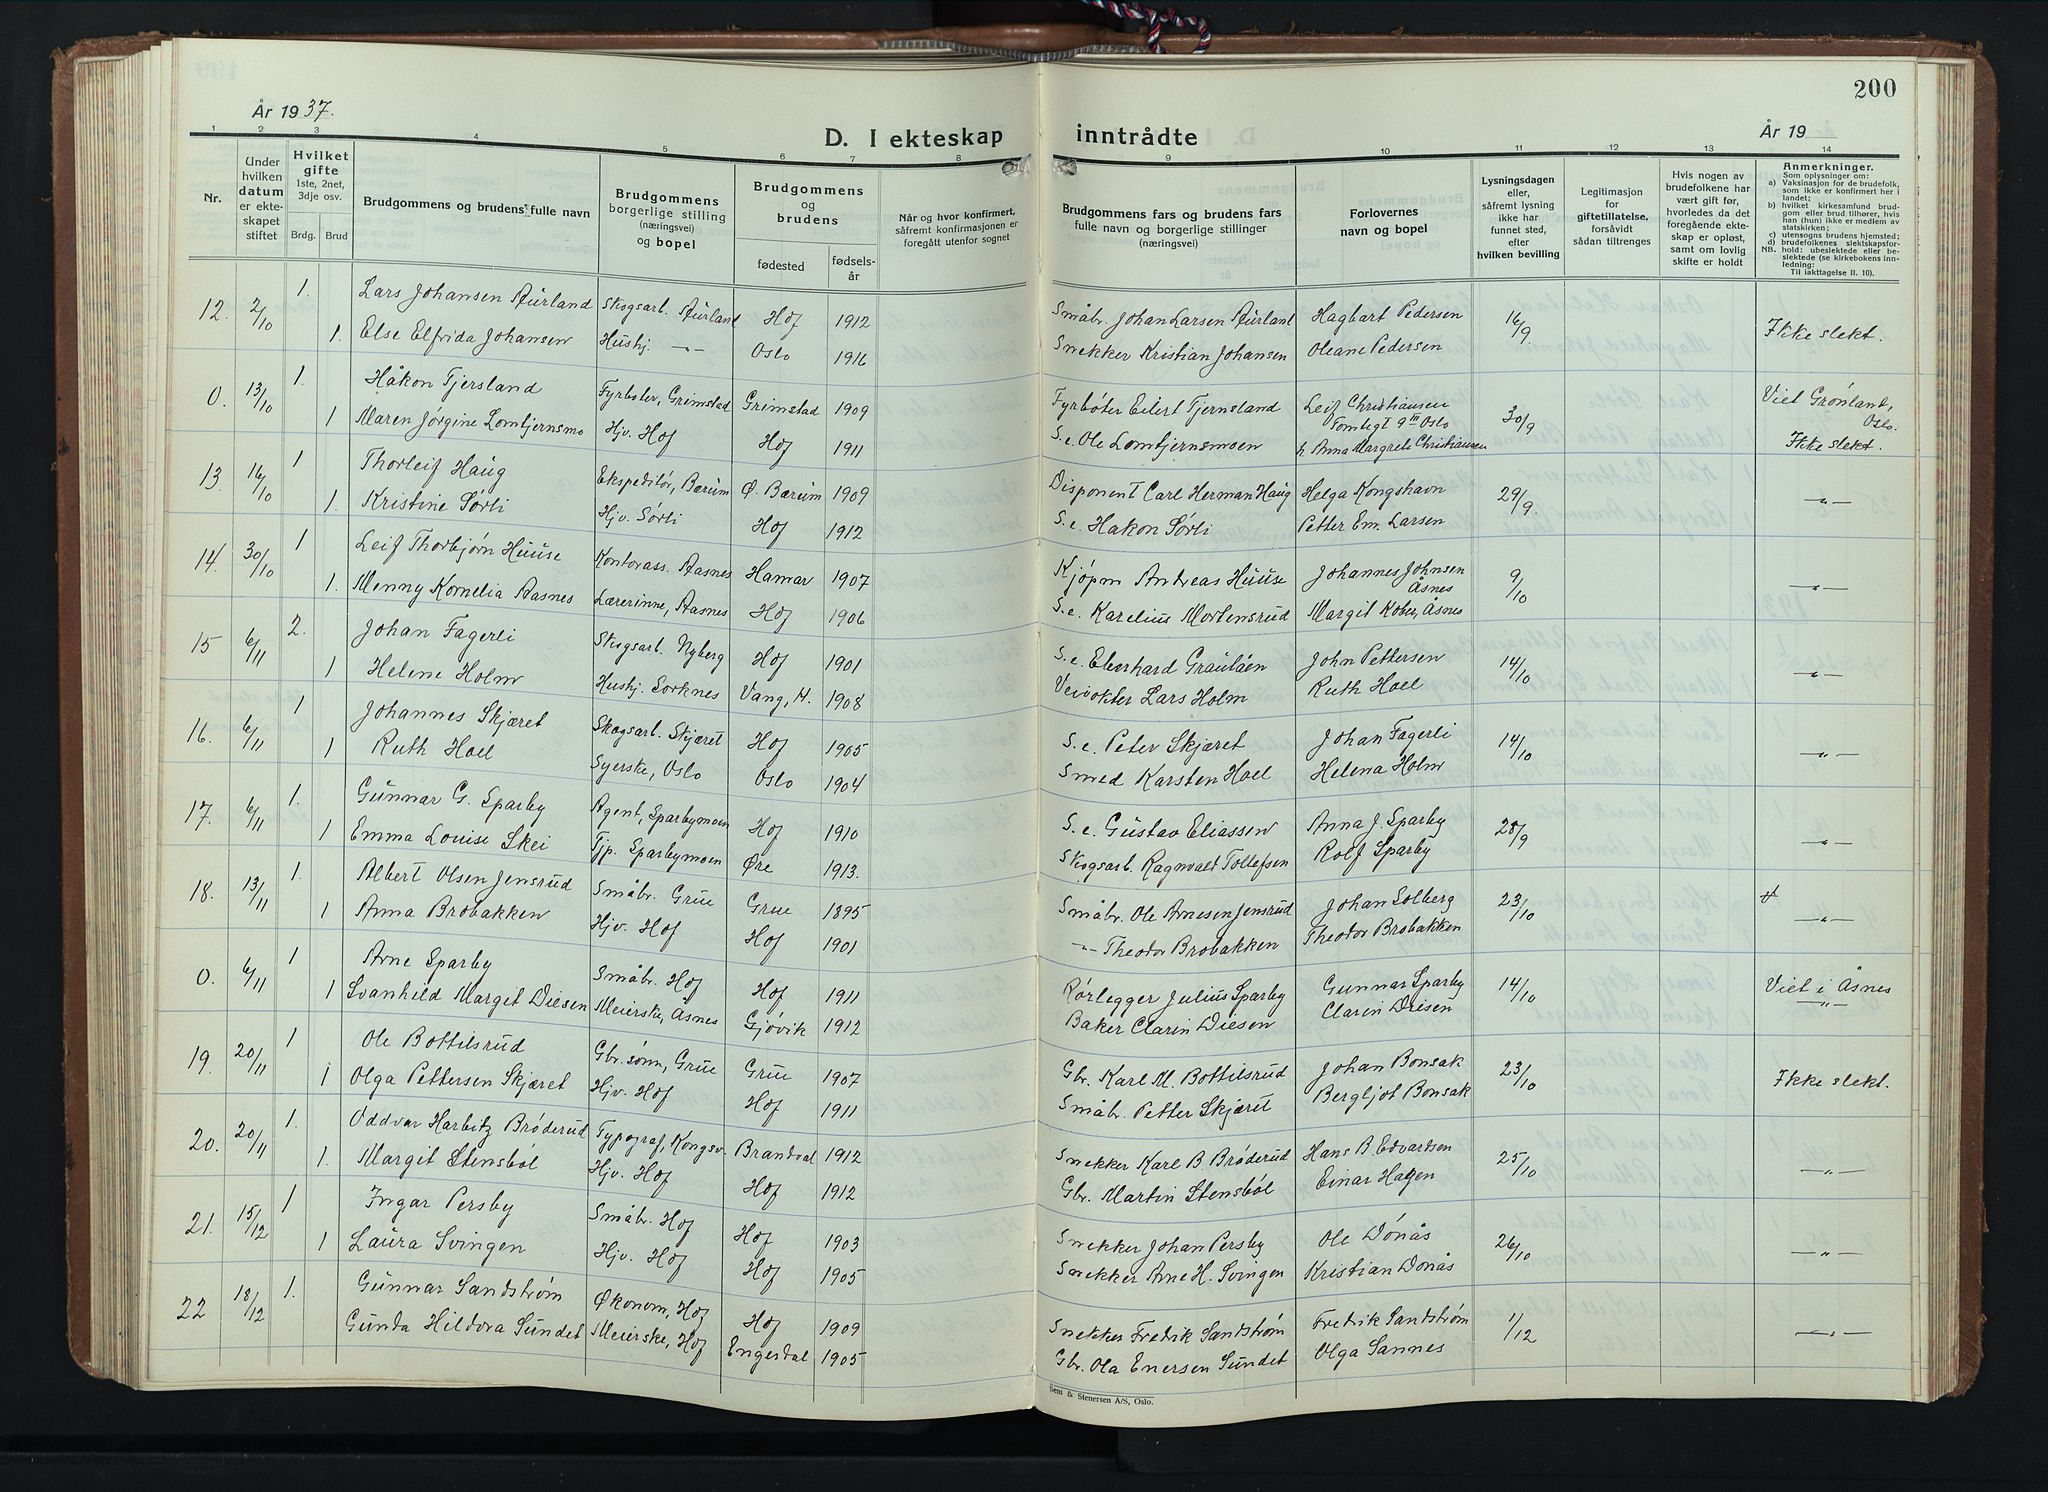 200
År 1937.
År 19
D. I ekteskap inntrådte
1 2 3 4 5 6 7 8 9 10 11 12 13 14
Nr.
Under hvilken datum er ekteskapet stiftet
Hvilket gifte
1ste, 2net, 3dje osv.
Brdg. Brud
Brudgommens og brudens fulle navn
Brudgommens borgerlige stilling (næringsvei) og bopel
Brudgommens og brudens
fødested fødselsår
Når og hvor konfirmert, såfremt konfirmasjonen er foregått utenfor sognet
Brudgommens fars og brudens fars fulle navn og borgerlige stillinger (næringsvei)
Forlovernes navn og bopel
Lysningsdagen eller, såfremt lysning ikke har funnet sted, efter hvilken bevilling
Legitimasjon for giftetillatelse, forsåvidt sådan tiltrenges
Hvis nogen av brudefolkene har vært gift før, hvorledes da det foregående ekteskap er opløst, samt om lovlig skifte er holdt
Anmerkninger.
Som oplysninger om:
a) Vaksinasjon for de brudefolk, som ikke er konfirmert her i landet;
b) hvilket kirkesamfund brudgom eller brud tilhører, hvis han (hun) ikke er medlem av statskirken;
c) utensogns brudens hjemsted;
d) brudefolkenes slektskapsforhold: ubeslektede eller beslektede (se kirkebokens innledning:
NB. Til iakttagelse II. 10).
12. 2/10 1. Lars Johansen Aurland Skogsarb. Aurland Hof 1912 Småbr. Johan Larsen Aurland Hagbart Pedersen 16/9 Ikke slekt.
1. Else Elfrida Johansen Hushj. -"- Oslo 1916 Snekker Kristian Johansen Oleane Pedersen
0. 13/10 1. Håkon Tjersland Fyrbøter, Grimstad Grimstad 1909 Fyrbøter Eilert Tjernsland Leif Christiansen Tomtegt 9 III Oslo 30/9 Viet Grønland, Oslo.
1 Maren Jørgine Lomtjernsmo Hjv. Hof Hof 1911 S.e. Ole Lomtjernsmoen h. Anna Margrete Christiansen Ikke slekt.
13. 16/10 1 Thorleif Haug Ekspeditør, Bærum Ø. Bærum 1909 Disponent Carl Herman Haug Helga Kongshavn 29/9. -"-
1. Kristine Sørli Hjv. Sørli Hof 1912 S.e. Håkon Sørli Petter Em. Larsen
14. 30/10 1 Leif Thorbjørn Huuse Kontorass. Aasnes Hamar 1907 Kjøpm Andreas Huuse Johannes Johnsen Åsnes 9/10 -"-
1. Menny Kornelia Aasnes Lærerinne, Aasnes Hof 1906 S.e. Karelius Mortensrud Margit Kober, Åsnes
15 6/11 2. Johan Fagerli Skogsarb. Nyberg Hof 1901 S.e. Eberhard Graulåen John Pettersen 14/10 -"-
1 Helene Holm Hushj. Sorknes Vang, H. 1908 Veivokter Lars Holm Ruth Hoel
16. 6/11 1 Johannes Skjæret Skogsarb. Skjæret Hof 1905 S.e. Peter Skjæret Johan Fagerli 14/10 -"-
1 Ruth Hoel Syerske, Oslo Oslo 1904 Smed Karsten Hoel Helena Holm
17. 6/11 1. Gunnar G. Sparby Agent, Sparbymoen Hof 1910 S.e. Gustav Eliassen Anna J. Sparby 28/9 -"-
1 Emma Louise Skei Tjp. Sparbymoen Øre 1913. Skogsarb. Ragnvald Tollefsen Rolf Sparby
18. 13/11 1. Albert Olsen Jensrud Småbr. Grue Grue 1895 Småbr. Ole Arnesen Jensrud Johan Solberg 23/10 -"-
1 Anna Brobakken Hjv. Hof Hof 1901 -"- Theodor Brobakken Theodor Brobakken
0. 6/11 1 Arne Sparby Småbr. Hof Hof 1911 Rørlegger Julius Sparby Gunnar Sparby 14/10 Viet i Åsnes
1 Svanhild Margit Diesen Meierske, Åsnes Gjøvik 1912 Baker Clarin Diesen Clarin Diesen -"-
19. 20/11 1 Ole Bottilsrud Gbr.sønn, Grue Grue 1907 Gbr. Karl M. Bottilsrud Johan Bonsak 23/10 Ikke slekt.
1 Olga Pettersen Skjæret Hjv. Hof Hof 1911 Småbr. Petter Skjæret Bergljot Bonsak
20. 20/11 1. Oddvar Harbitz Brøderud Typograf, Kongsv. Brandval 1912 Snekker Karl B. Brøderud Hans B. Edvardsen 25/10 -"-
1. Margit Stensbøl Hjv. Hof Hof 1912 Gbr. Martin Stensbøl Einar Hagen
21. 15/12 1 Ingar Persby Småbr. Hof Hof 1903 Snekker Johan Persby Ole Dónås 26/10 -"-
1 Laura Svingen Hjv. Hof Hof 1905 Snekker Arne H. Svingen Kristian Dónås
22 18/12 1. Gunnar Sandstrøm Økonom, Hof Hof 1909 Snekker Fredrik Sandstrøm Fredrik Sandstrøm 1/12 -"-
Gunda Hildora Sundet Meierske, Hof Engerdal 1905 Gbr. Ola Enersen Sundet Olga Sannes
Sem & Stenersen A/S, Oslo.